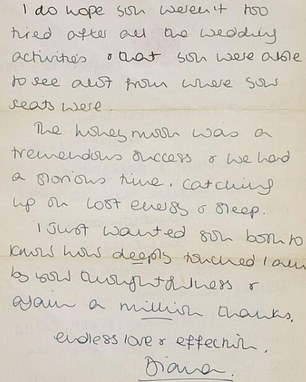 I do hope you weren't too
tired after all the wedding
activities & that you were able
to see alot from where your
seats were.
The honeymoon was a
tremendous success & we had
a glorious time, catching
up on lost energy & sleep.
I just wanted you both to
know how deeply touched I am
by your thoughtfulness &
again a million thanks,
endless love & effection,
Diana.